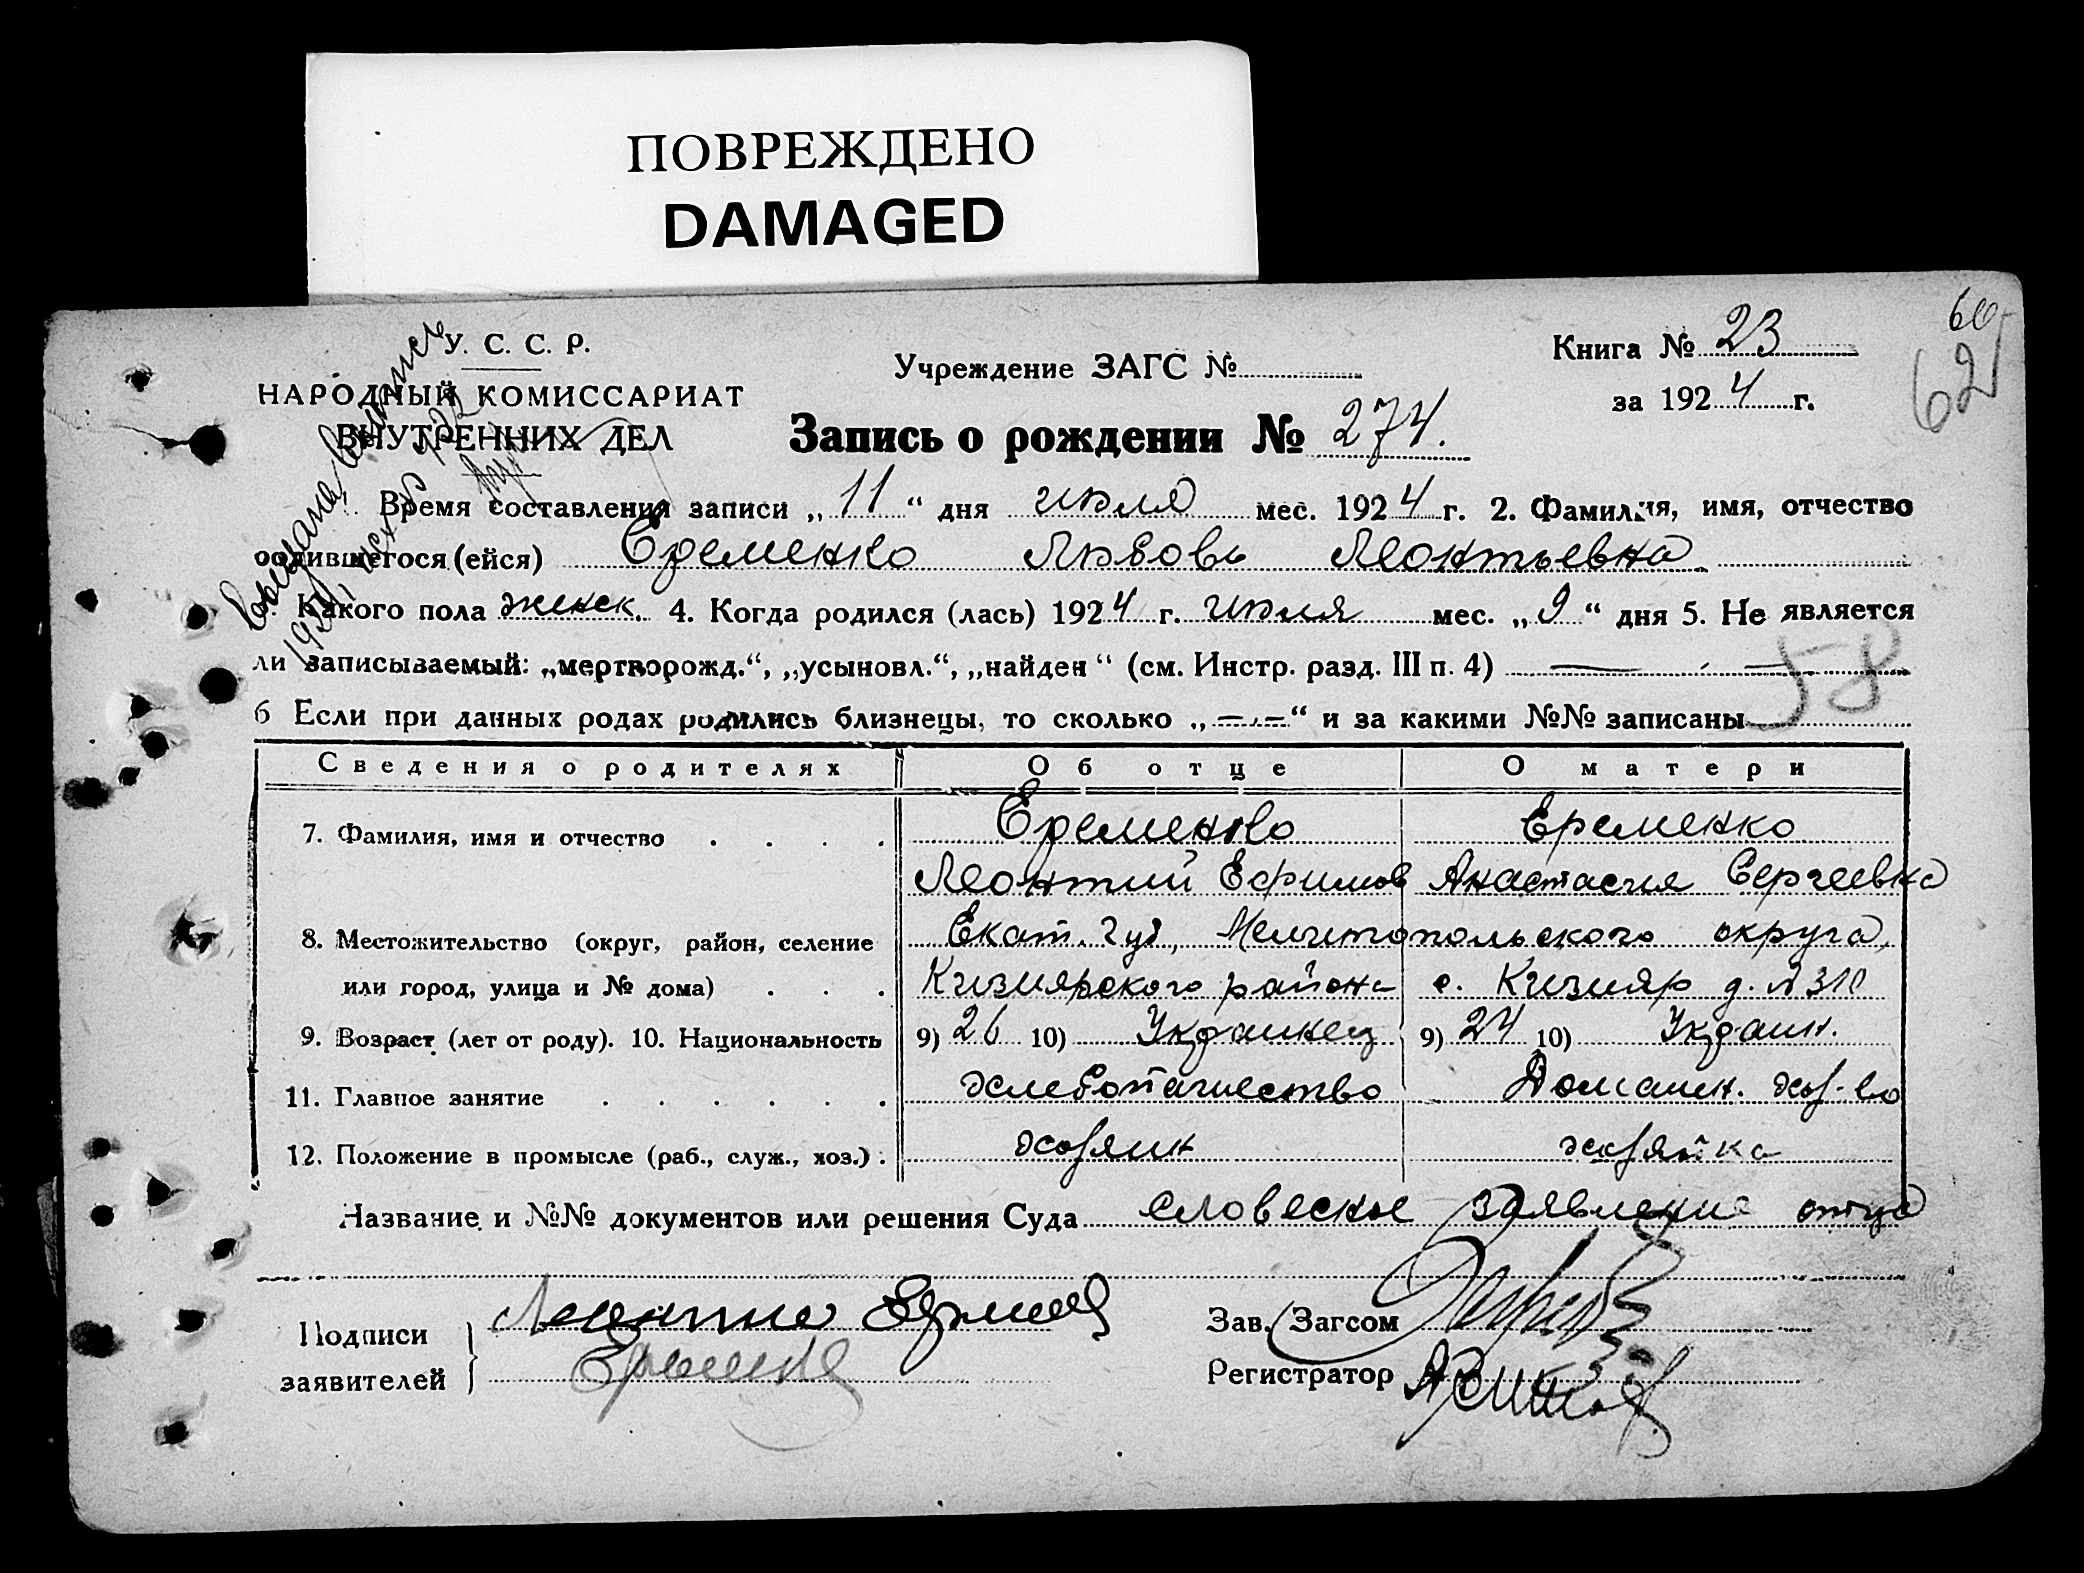 ПОВРЕЖДЕНО
DAMAGED
У. С. С. Р.
НАРОДНЫЙ КОМИССАРИАТ
ВНУТРЕННИХ ДЕЛ
Учреждение ЗАГС №
Книга № 23
за 1924 г.
60
62
Запись о рождении № 274.
Время составления записи „11“ дня июля мес. 1924 г. 2. Фамилия, имя, отчество
родившегося (ейся) Еременко Любовь Леонтьевна
Какого пола женск. 4. Когда родился (лась) 1924 г. июля мес. „9“ дня 5. Не является
ли записываемый: „мертворожд.“, „усыновл.“, „найден“ (см. Инстр. разд. III п. 4) —
58
6 Если при данных родах родились близнецы, то сколько „—“ и за какими №№ записаны
Сведения о родителях Об отце О матери
7. Фамилия, имя и отчество Еременко Еременко
Леонтий Ефимов Анастасия Сергеевна
8. Местожительство (округ, район, селение Екат. губ., Мелитопольского округа,
или город, улица и № дома) Кизиярского района с. Кизияр д. № 310
9. Возраст (лет от роду). 10. Национальность 9) 26 10) Украинец 9) 24 10) Украин.
11. Главное занятие хлебопашество Домашн. хоз-во
12. Положение в промысле (раб., служ., хоз.) хозяин хозяйка
Название и №№ документов или решения Суда словесное заявление отца
Подписи
заявителей
Зав. Загсом
Регистратор